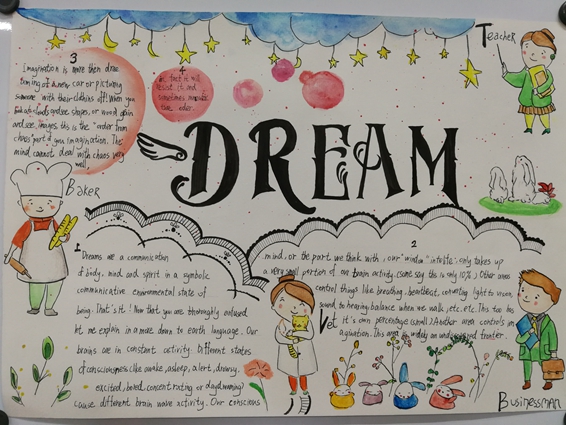 DREAM
Teacher
Baker
Vet
Businessman
1
Dreams are a communication
of body, mind and spirit in a symbolic
communicative environmental state of
being. That's it! Now that you are thoroughly confused
let me explain in a more down to earth language. Our
brains are in constant activity. Different states
of consciousness like awake, asleep, alert, drowsy,
excited, bored, concentrating or daydreaming?
cause different brain wave activity. Our conscious
2
mind, or the part we think with, our "window" into life, only takes up
a very small portion of our brain activity (some say this is only 10%.) Other areas
control things like breathing, heartbeat, converting light to vision,
sound, to hearing, balance when we walk, etc, etc. This too has
it's own percentage (small) Another area controls im
agination. This area is widely an undiscovered frontier.
3
Imagination is more then drea
ming of a new car or picturing
someone with their clothins off! When you
look at clouds and see shapes, or word again
and see images this is the "order from
chaos" part of you imagination. The
mind cannot deal with chaos very
well.
4
In fact it will
resist it and
sometimes
order.